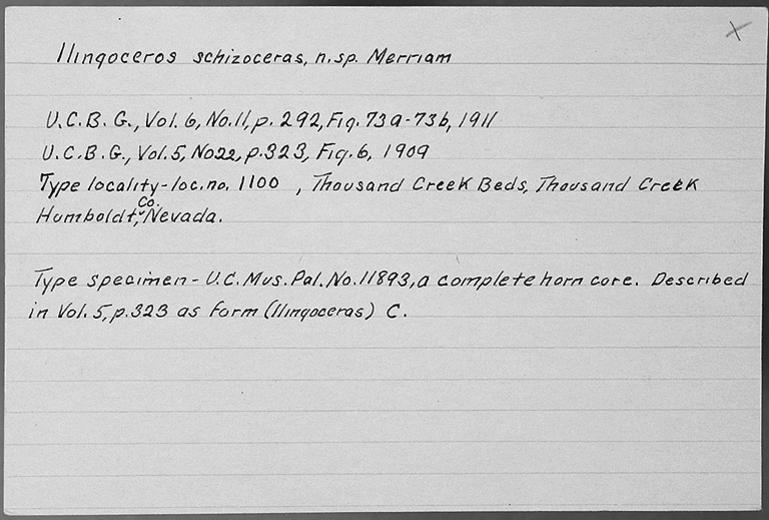 X
Ilingoceros schizoceras, n.sp. Merriam
U.C.B.G., Vol. 6, No.11, p. 292, Fig. 73a-73b, 1911
U.C.B.G., Vol. 5, No22, p.323, Fig. 6, 1909
Type locality - loc. no. 1100 , Thousand Creek Beds, Thousand Creek
Humboldt, Co. Nevada.
Type specimen - U.C. Mus. Pal. No. 11893, a complete horn core. Described
in Vol. 5, p.323 as form (Ilingoceras) C.